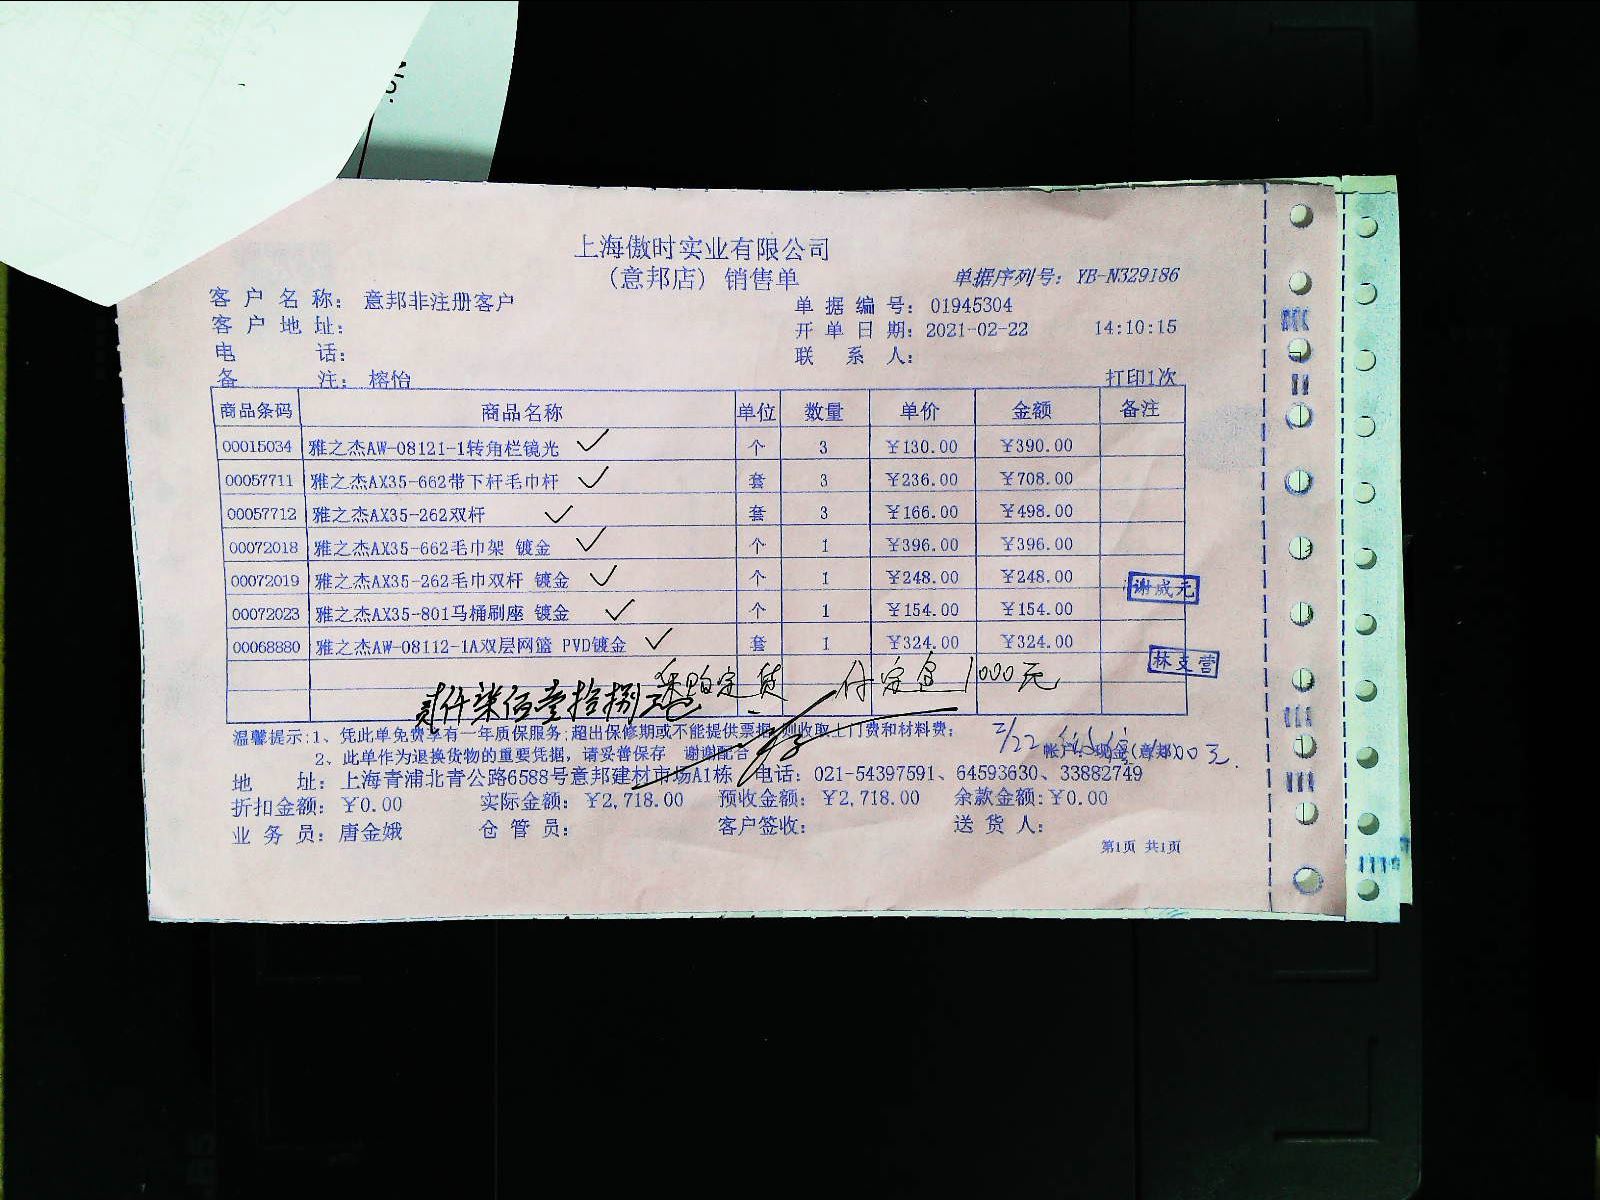 上海傲时实业有限公司
(意邦店) 销售单
单据序列号: YB-N329186
客户名称: 意邦非注册客户
单据编号: 01945304
客户地址:
开单日期: 2021-02-22 14:10:15
电话:
联系人:
备注: 榕怡
打印1次
商品条码 商品名称 单位 数量 单价 金额 备注
00015034 雅之杰AW-08121-1转角栏镜光 个 3 ¥130.00 ¥390.00
00057711 雅之杰AX35-662带下杆毛巾杆 套 3 ¥236.00 ¥708.00
00057712 雅之杰AX35-262双杆 套 3 ¥166.00 ¥498.00
00072018 雅之杰AX35-662毛巾架 镀金 个 1 ¥396.00 ¥396.00
00072019 雅之杰AX35-262毛巾双杆 镀金 个 1 ¥248.00 ¥248.00
00072023 雅之杰AX35-801马桶刷座 镀金 个 1 ¥154.00 ¥154.00
00068880 雅之杰AW-08112-1A双层网篮 PVD镀金 套 1 ¥324.00 ¥324.00
定货 付定金1000元
贰仟柒佰壹拾捌元
温馨提示:1、凭此单免费享有一年质保服务;超出保修期或不能提供票据,则收取上门费和材料费;
2/22
2、此单作为退换货物的重要凭据,请妥善保存 谢谢配合
帐户: 现金(意邦)
地址: 上海青浦北青公路6588号意邦建材市场A1栋 电话: 021-54397591、64593630、33882749
折扣金额: ¥0.00 实际金额: ¥2,718.00 预收金额: ¥2,718.00 余款金额:¥0.00
业务员: 唐金娥 仓管员: 客户签收: 送货人:
第1页 共1页